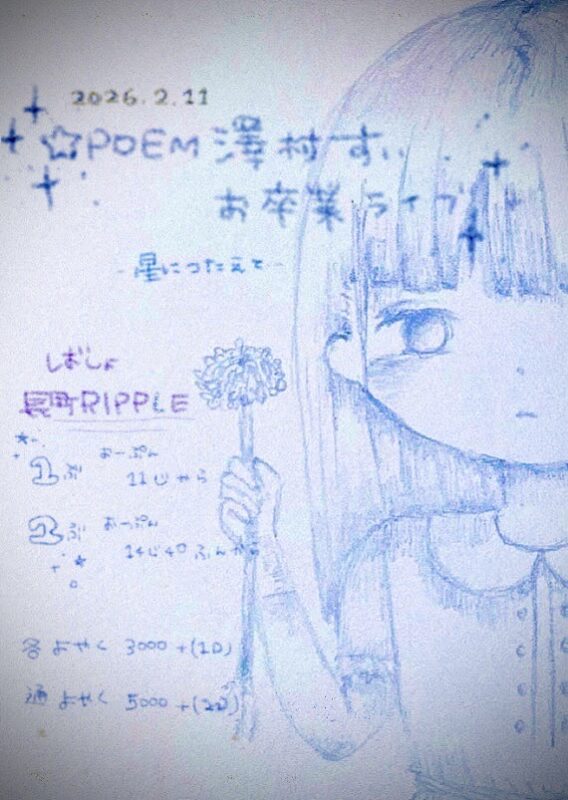 2026.2.11
☆POEM 澤村すい
お卒業ライブ
-星につたえて-
ばしょ
長町RIPPLE
1ぶ おーぷん
11じから
2ぶ おーぷん
14じ40ぷんから
各 よやく 3000+(1D)
通 よやく 5000+(2D)